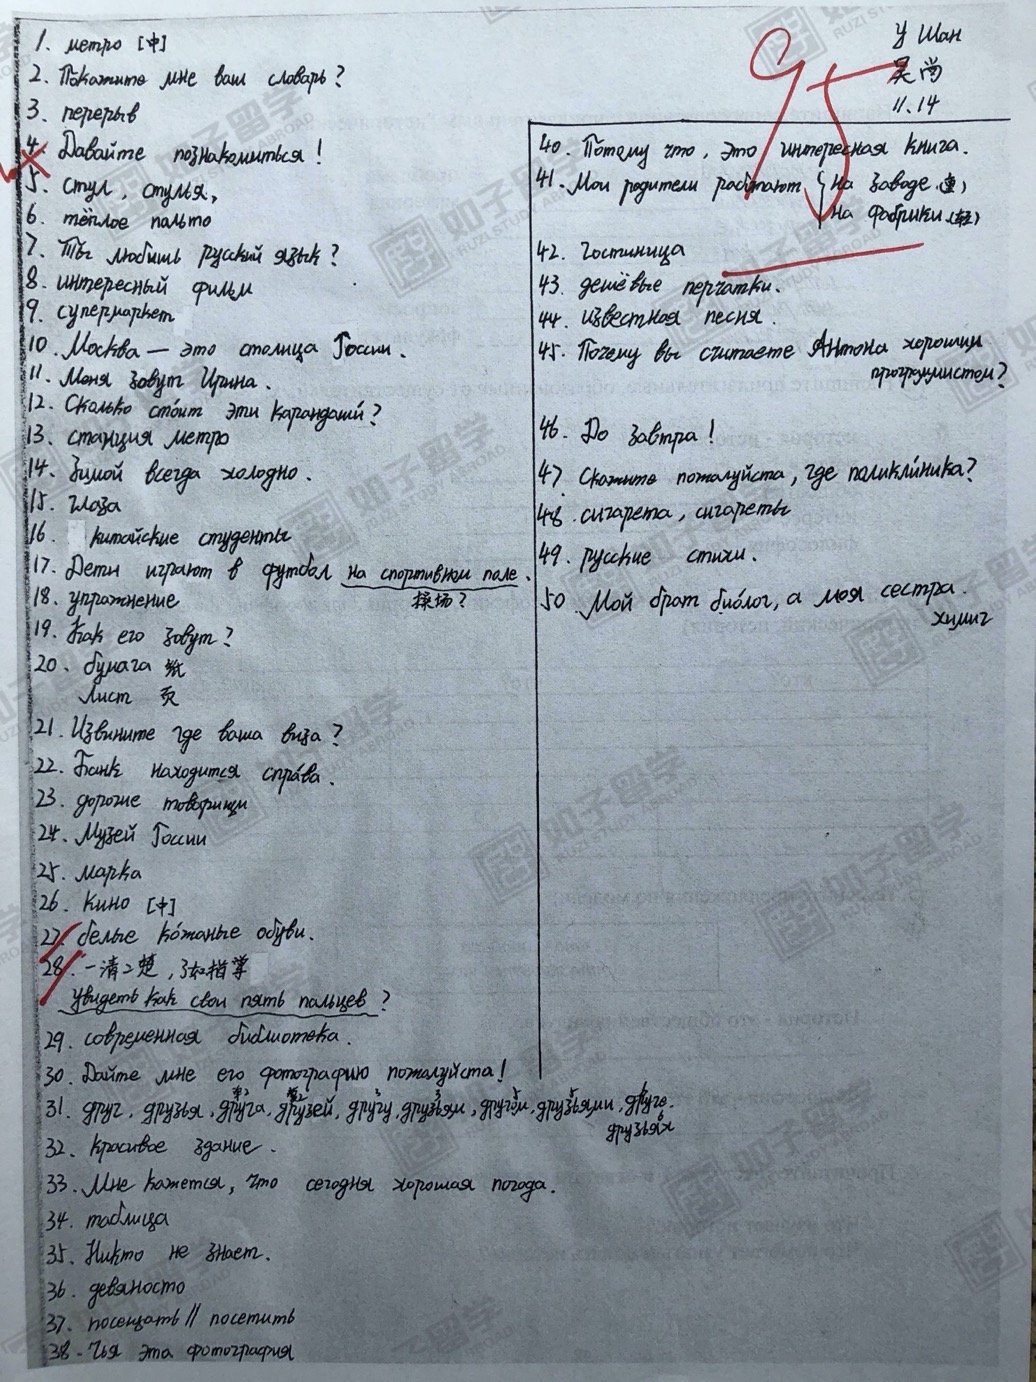 У Шан
吴尚
11.14
95
1. метро [中]
2. Покажите мне ваш словарь?
3. перерыв
4. Давайте познакомиться!
5. стул, стулья,
6. тёплое пальто
7. Ты любишь русский язык?
8. интересный фильм
9. супермаркет
10. Москва — это столица России.
11. Меня зовут Ирина.
12. Сколько стоит эти карандаши?
13. станция метро
14. Зимой всегда холодно.
15. глаза
16 китайские студенты
17. Дети играют в футбол на спортивном поле.
操场?
18. упражнение
19. Как его зовут?
20. бумага 纸
Лист 页
21. Извините где ваша виза?
22. Банк находится справа.
23. дорогие товарищи
24. Музей России
25. марка
26. Кино [中]
27. белые кожаные обуви.
28. 一清二楚, 了如指掌
увидеть как свои пять пальцев?
29. современная библиотека.
30. Дайте мне его фотографию пожалуйста!
31. друг, друзья, друга, друзей, другу, друзьям, другом, друзьями, друге.
друзьях
32. красивое здание.
33. Мне кажется, что сегодня хорошая погода.
34. таблица
35. Никто не знает.
36. девяносто
37. посещать // посетить
38. Чья эта фотография
40. Потому что, это интересная книга.
41. Мои родители работают на заводе (重)
на фабрики (轻)
42. Гостиница
43. дешёвые перчатки.
44. известная песня.
45. Почему вы считаете Антона хорошим
программистом?
46. До завтра!
47. Скажите пожалуйста, где поликлиника?
48. сигарета, сигареты
49. русские стихи.
50. Мой брат биолог, а моя сестра.
химик
如子留学
RUZI STUDY ABROAD